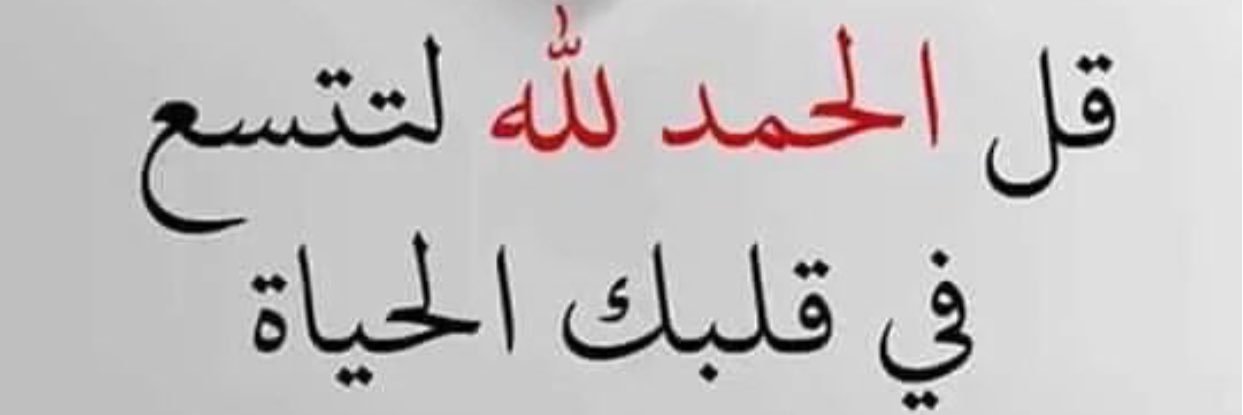 قل الحمد لله لتتسع
في قلبك الحياة